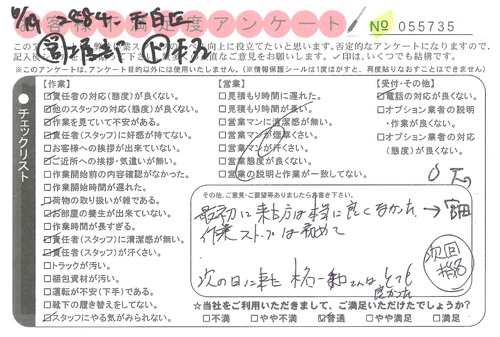 6/19 2984- 天白区
お客様不満足度アンケート
№ 055735
このアンケートは、
向上に役立てたいと思います。否定的なアンケートになりますので、
直なご意見をお願い致します。✓印は、いくつでも結構です。
※このアンケートは、アンケート目的以外には使用いたしません。(※情報保護シールは1度はがすと、再度貼りなおすことはできません)
チェックリスト
【作業】
責任者の対応(態度)が良くない。
他のスタッフの対応(態度)が良くない。
作業を見ていて不安がある。
責任者(スタッフ)に好感が持てない。
お客様への挨拶が出来ていない。
ご近所への挨拶・気遣いが無い。
作業開始前の内容確認がなかった。
作業開始時間が遅れた。
荷物の取り扱いが雑である。
お部屋の養生が出来ていない。
作業時間が長すぎる。
責任者(スタッフ)に清潔感が無い。
責任者(スタッフ)が汗くさい。
トラックが汚い。
梱包資材が汚い。
運転が不安(下手)である。
靴下の履き替えをしてない。
スタッフにやる気がみられない。
【営業】
見積もり時間に遅れた。
見積もり時間が長い。
営業マンに清潔感が無い。
営業マンが煙草くさい。
営業マンが汗くさい。
営業態度が良くない。
営業の説明と作業が一致してない。
【受付・その他】
電話の対応が良くない。
オプション業者の説明
・作業が良くない。
オプション業者の対応
(態度)が良くない。
その他、ご意見・ご要望等ありましたらお書き下さい。
最初に来た方は本当に良くなかった
作業ストップは初めて
次の日に来た
さんはとても
良かった
次回
★当社をご利用いただきまして、ご満足いただけたでしょうか?
不満 やや不満 普通 やや満足 満足